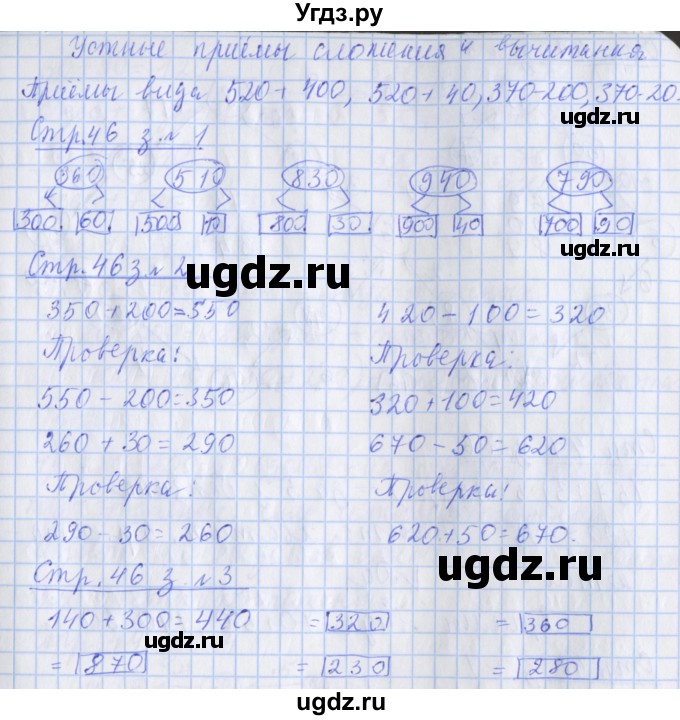 Угдз.ру
Устные приёмы сложения и вычитания
Приёмы вида 520+400, 520+40, 370-200, 370-20.
Стр.46 з.№ 1
360 510 830 940 790
300 60 500 10 800 30 900 40 700 90
Стр.46 з.№ 2
ugdz.ru ugdz.ru
350+200=550 420-100=320
Проверка: Проверка:
550-200=350 320+100=420
260+30=290 670-50=620
Проверка: Проверка:
290-30=260 620+50=670.
ugdz.ru ugdz.ru
Стр.46 з.№3
140+300=440 =320 =360
ugdz.ru
=870 =230 =280
ugdz.ru